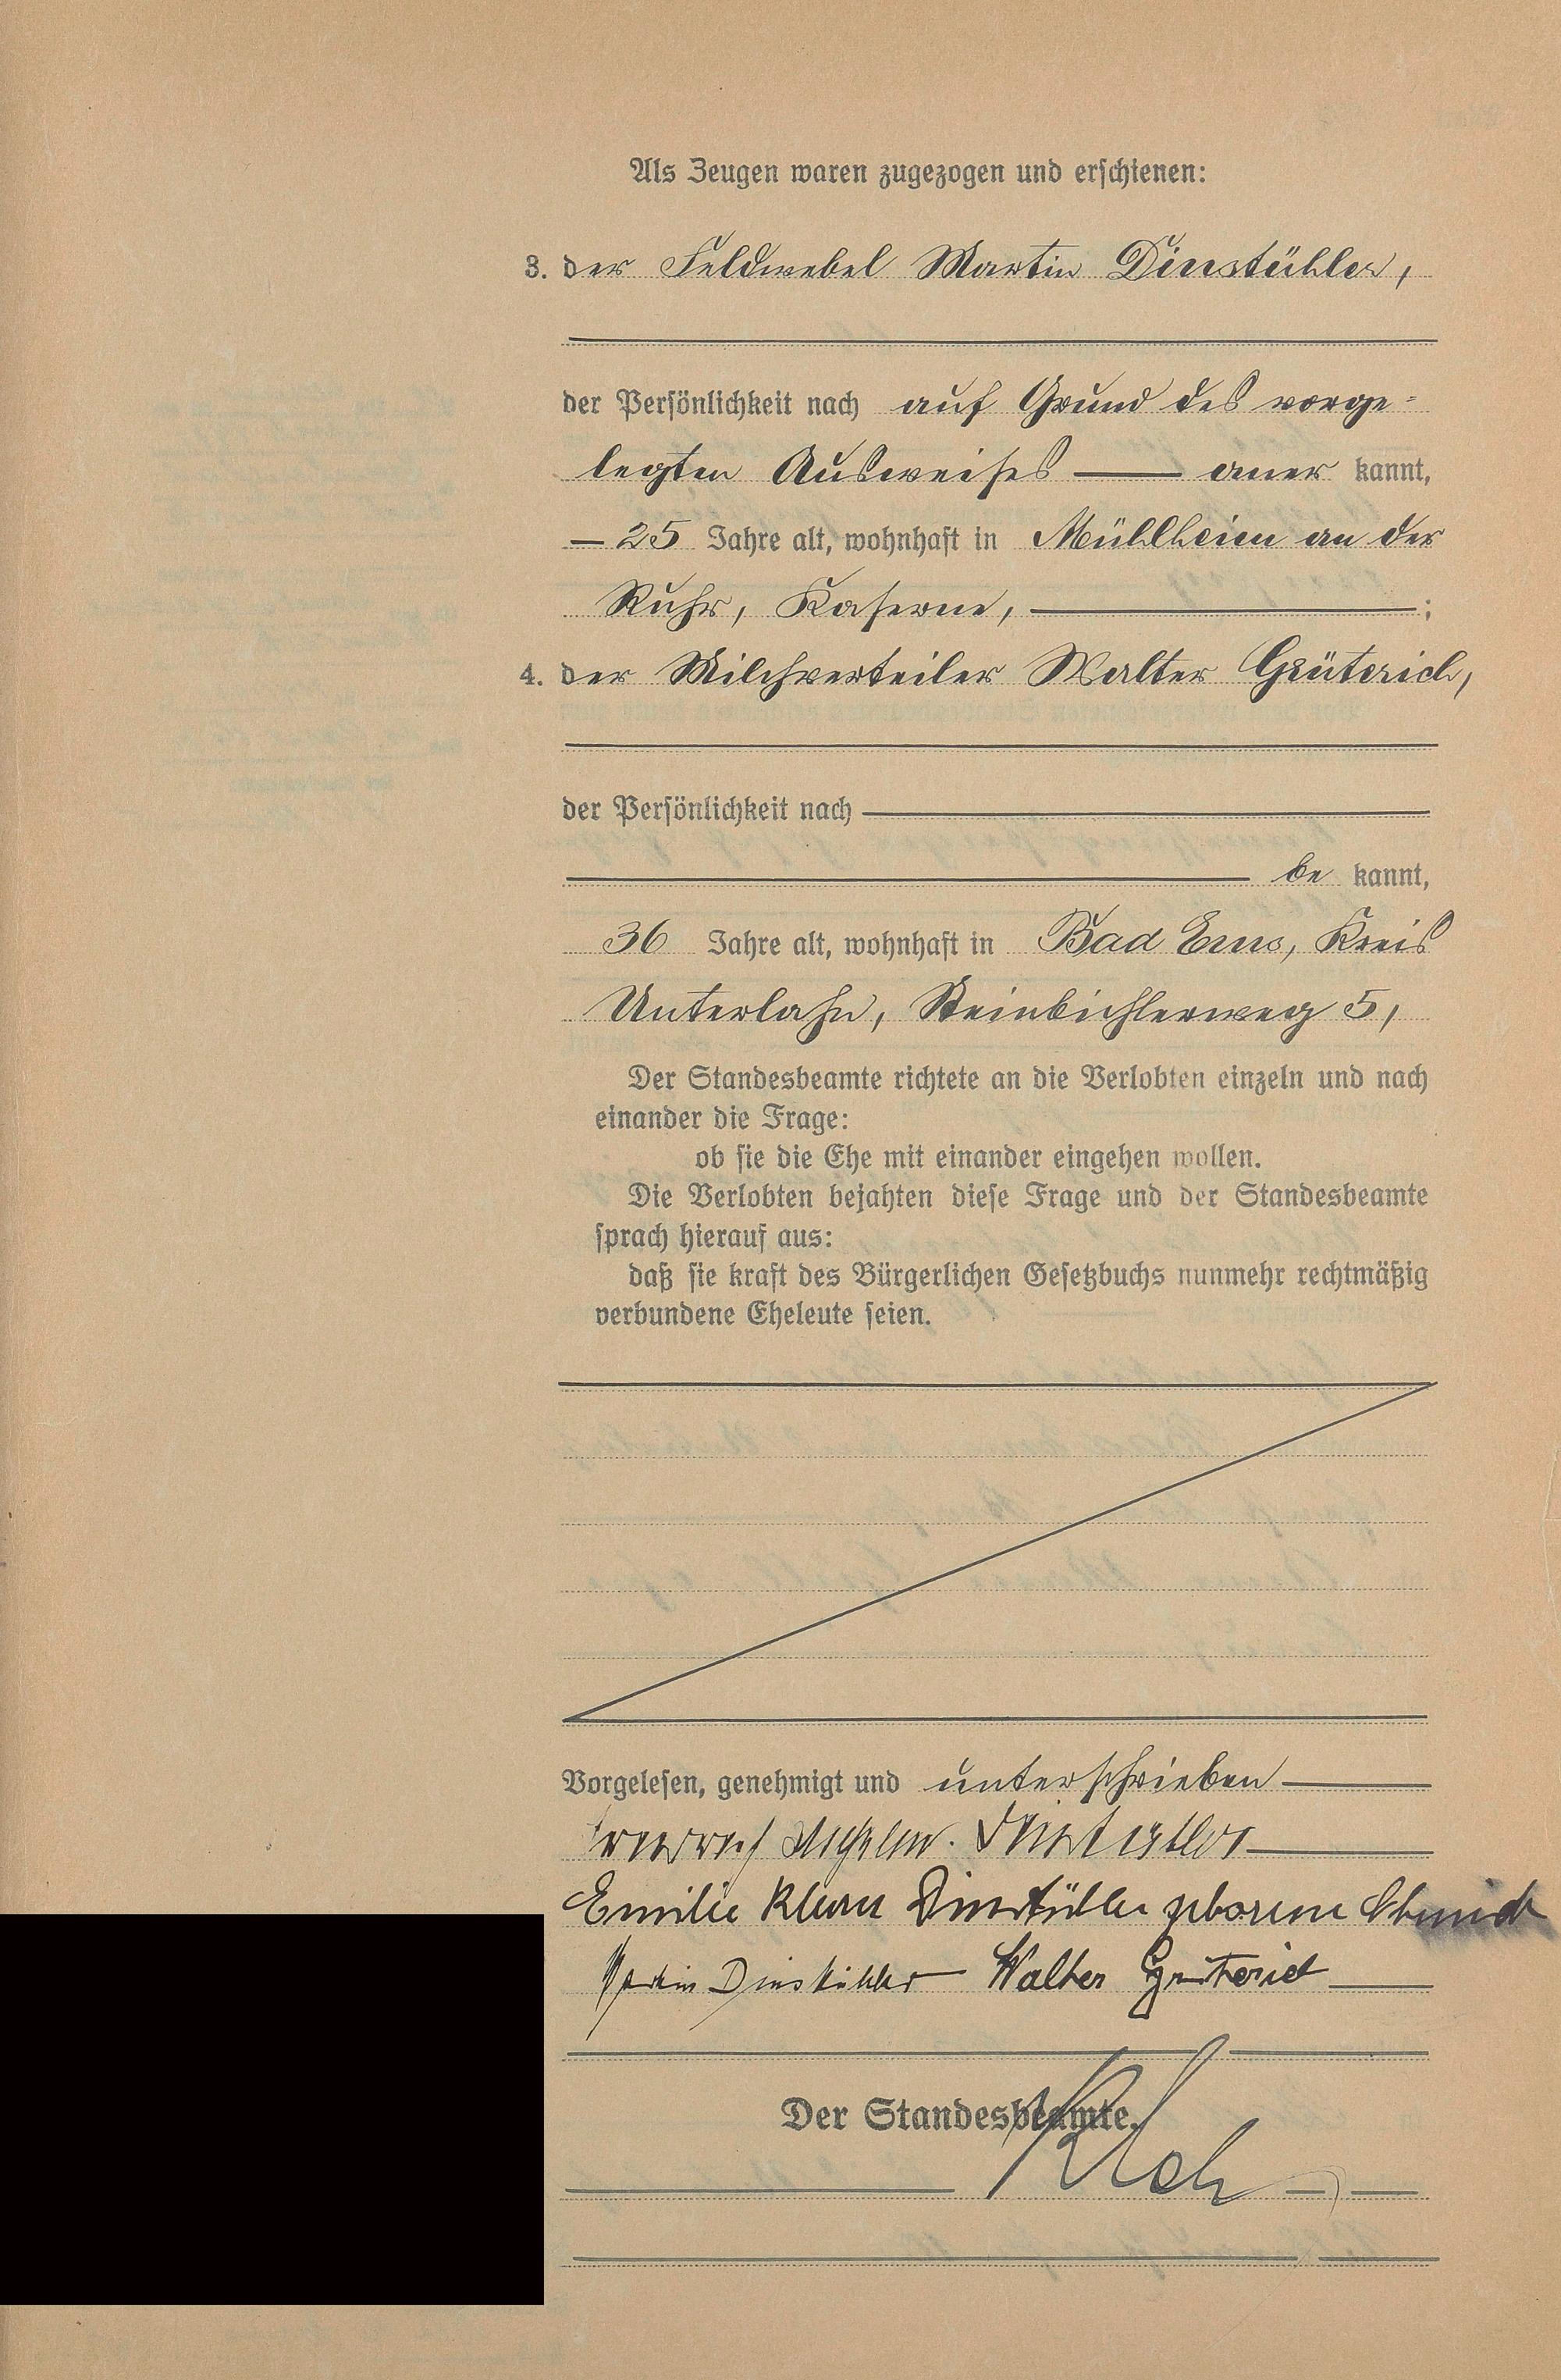 Als Zeugen waren zugezogen und erschienen:
3. der Feldwebel Martin Dinstühler,
der Persönlichkeit nach auf Grund des vorge-
legten Ausweises — aner kannt,
— 25 Jahre alt, wohnhaft in Mühlheim an der
Ruhr, Kaserne, — ;
4. der Milchverteiler Walter Grüterich,
der Persönlichkeit nach —
— be kannt,
36 Jahre alt, wohnhaft in Bad Ems, Kreis
Unterlahn, Steinbichlerweg 5,
Der Standesbeamte richtete an die Verlobten einzeln und nach
einander die Frage:
ob sie die Ehe mit einander eingehen wollen.
Die Verlobten bejahten diese Frage und der Standesbeamte
sprach hierauf aus:
daß sie kraft des Bürgerlichen Gesetzbuchs nunmehr rechtmäßig
verbundene Eheleute seien.
Vorgelesen, genehmigt und unterschrieben —
Dinstühler —
Emilie Klara Dinstühler geborene Schmidt
Martin Dinstühler Walter Grüterich —
Der Standesbeamte.